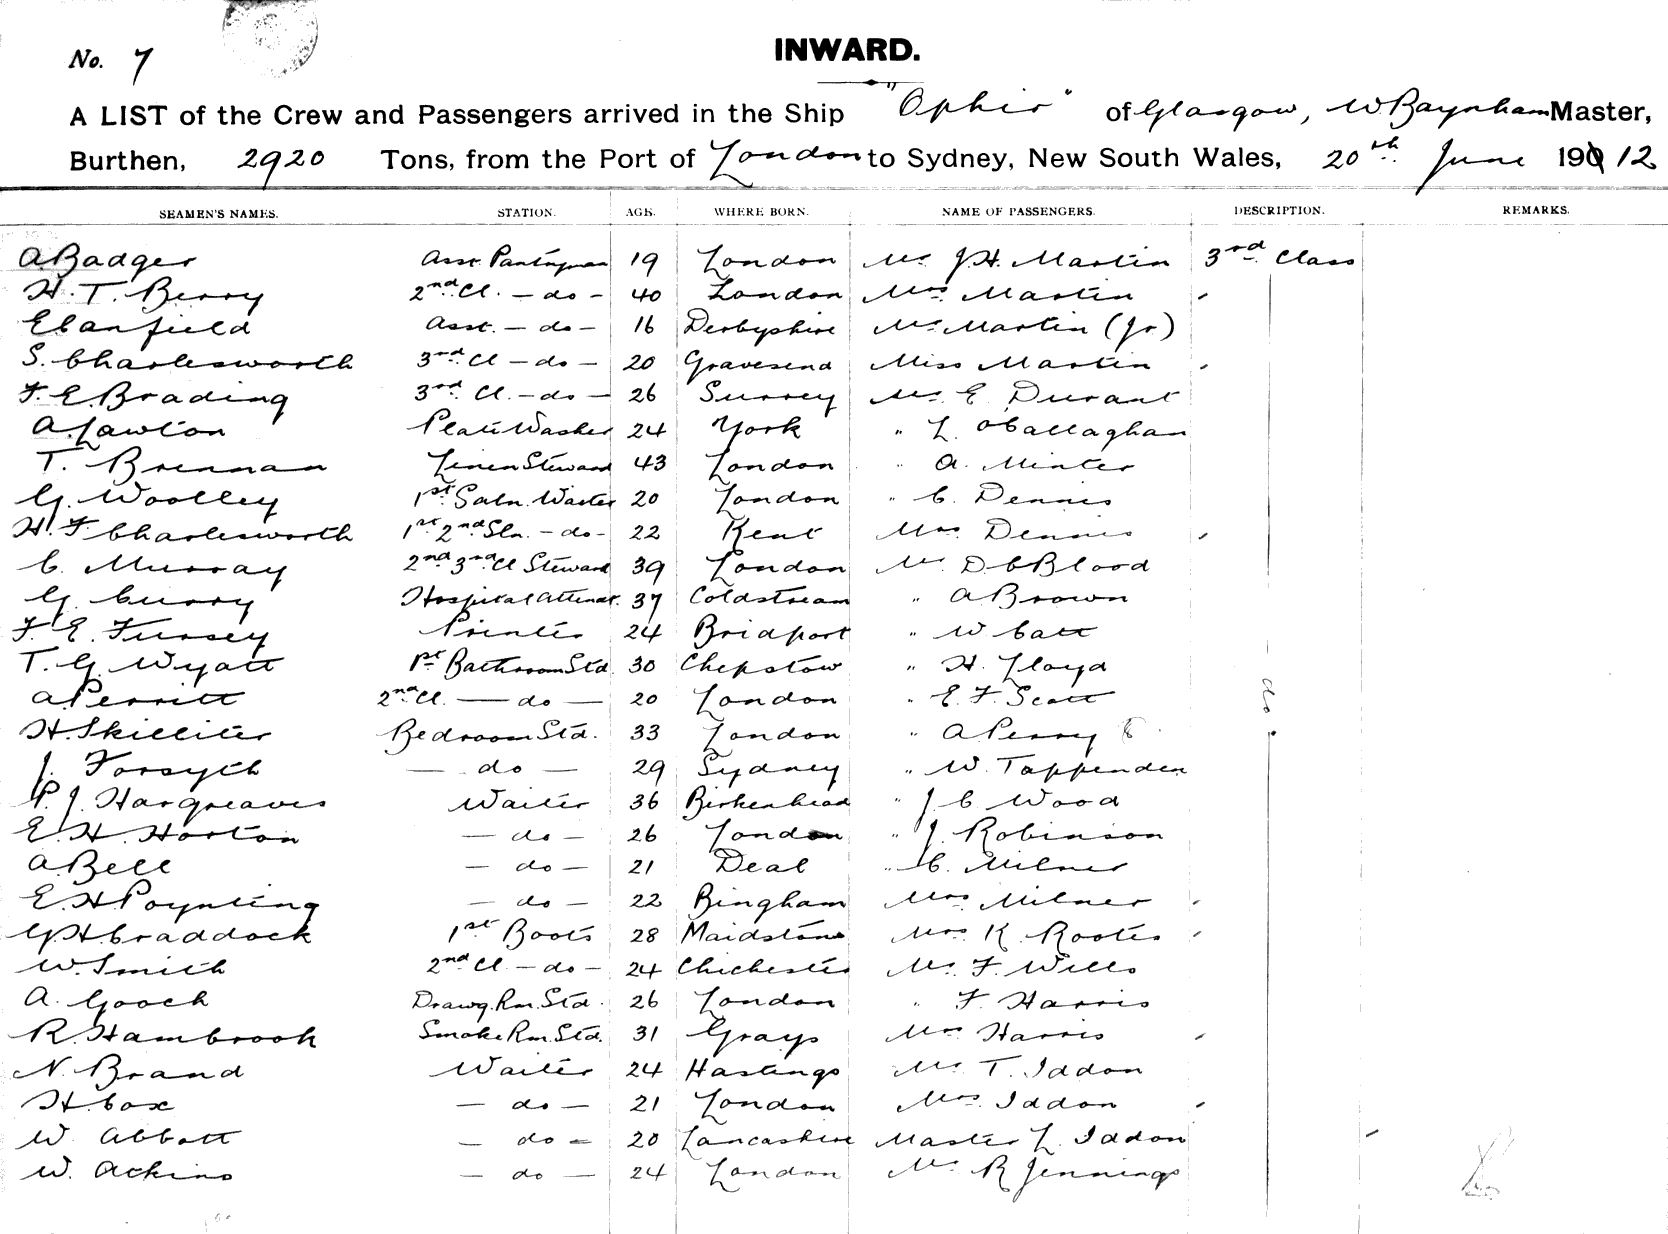 No. 7
INWARD.
A LIST of the Crew and Passengers arrived in the Ship "Ophir" of Glasgow, W Baynham Master,
Burthen, 2920 Tons, from the Port of London to Sydney, New South Wales, 20th June 190 12
SEAMEN'S NAMES. STATION. AGE. WHERE BORN. NAME OF PASSENGERS. DESCRIPTION. REMARKS.
A Badger Asst. Pantryman 19 London Mr J.H. Martin 3rd Class
H. T. Berry 2nd Cl. - do - 40 London Mrs Martin
E Canfield Asst. - do - 16 Derbyshire Mr Martin (Jr)
S. Charlesworth 3rd Cl - do - 20 Gravesend Miss Martin
F. E. Brading 3rd Cl. - do - 26 Surrey Mr E Durant
A. Lawton Plate Washer 24 York " L. O'Callaghan
T. Brennan Linen Steward 43 London " A. Minter
G. Woolley 1st Saln. Waiter 20 London " C. Dennis
H. F Charlesworth 1st 2nd Sln. - do - 22 Kent Mrs Dennis
C. Murray 2nd 3rd Cl Steward 39 London Mr D C Blood
G. Curry Hospital Attendt. 37 Coldstream " A Brown
F. E. Fursey Printer 24 Bridport " W Catt
T. G. Wyatt 1st Bathroom Std 30 Chepstow " H. Lloyd
A Perritt 2nd Cl. - do - 20 London " E. F. Scott
H. Skilliter Bedroom Std. 33 London " A Perry
J. Forsyth - do - 29 Sydney " W. Tappenden
P. J. Hargreaves Waiter 36 Birkenhead " J C Wood
E. H. Horton - do - 26 London " J. Robinson
A Bell - do - 21 Deal " C. Milner
E. H. Poynting - do - 22 Bingham Mrs Milner
G. H. Craddock 1st Boots 28 Maidstone Mrs K. Rootes
W. Smith 2nd Cl - do - 24 Chichester Mr F. Wills
A. Gooch Drawg. Rm. Std. 26 London " F. Harris
R. Hambrook Smoke Rm. Std. 31 Grays Mrs Harris
N. Brand Waiter 24 Hastings Mr T. Iddon
H. Cox - do - 21 London Mrs. Iddon
W. Abbott - do - 20 Lancashire Master L. Iddon
W. Atkins - do - 24 London Mr R Jennings
do.